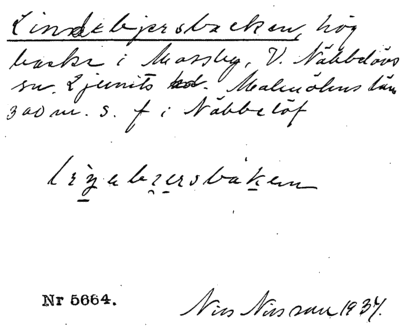 Lindebjersbacken, hög
backe i Mossby, V. Näbbelövs
sn. Ljunits hd. Malmöhus län
300 m. s. f i Näbbelöf
Nr 5664.
Nils Nilsson 1937.